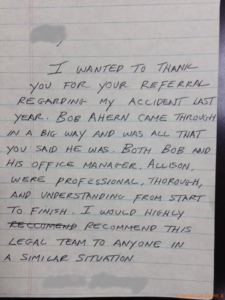 I WANTED TO THANK
YOU FOR YOUR REFERRAL
REGARDING MY ACCIDENT LAST
YEAR. BOB AHERN CAME THROUGH
IN A BIG WAY AND WAS ALL THAT
YOU SAID HE WAS. BOTH BOB AND
HIS OFFICE MANAGER, ALLISON,
WERE PROFESSIONAL, THOROUGH,
AND UNDERSTANDING FROM START
TO FINISH. I WOULD HIGHLY
RECCOMEND RECOMMEND THIS
LEGAL TEAM TO ANYONE IN
A SIMILAR SITUATION.